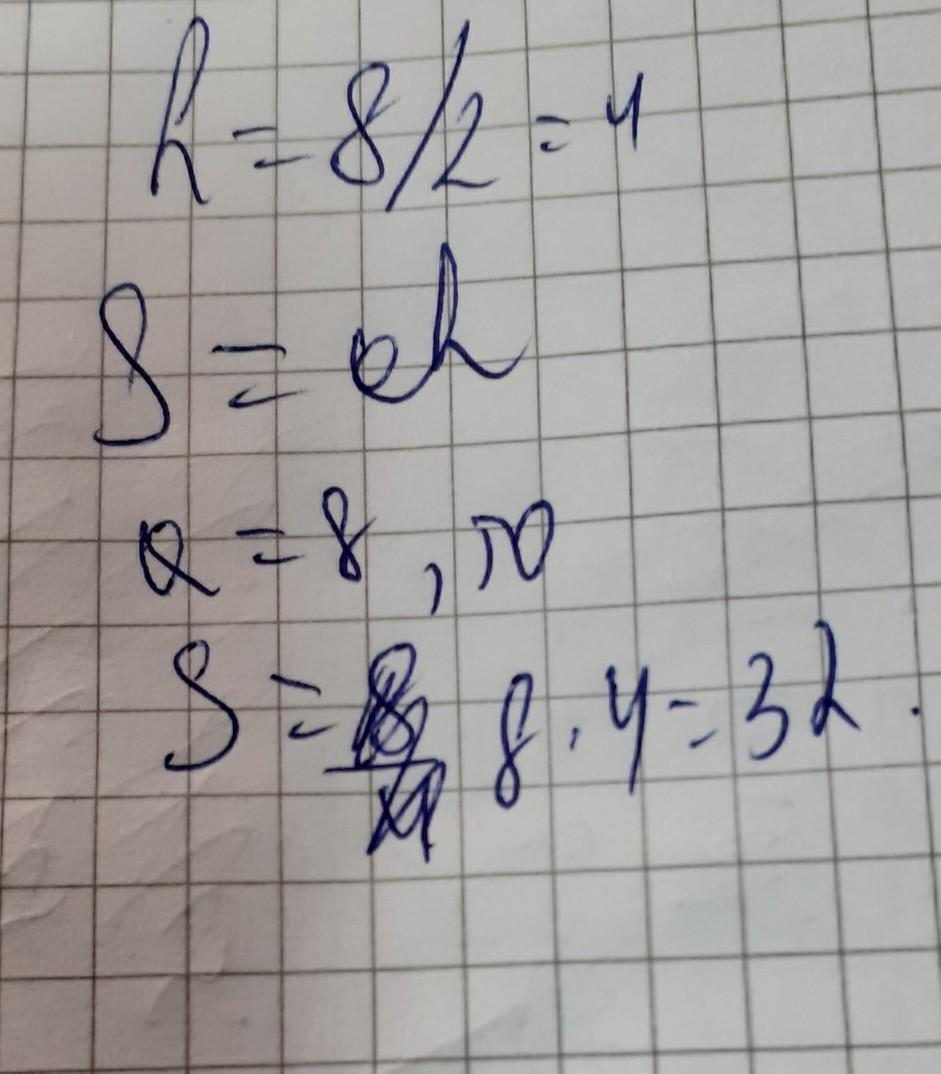 h = 8/2 = 4
S = ah
a = 8, то
S = 8 · 4 = 32.